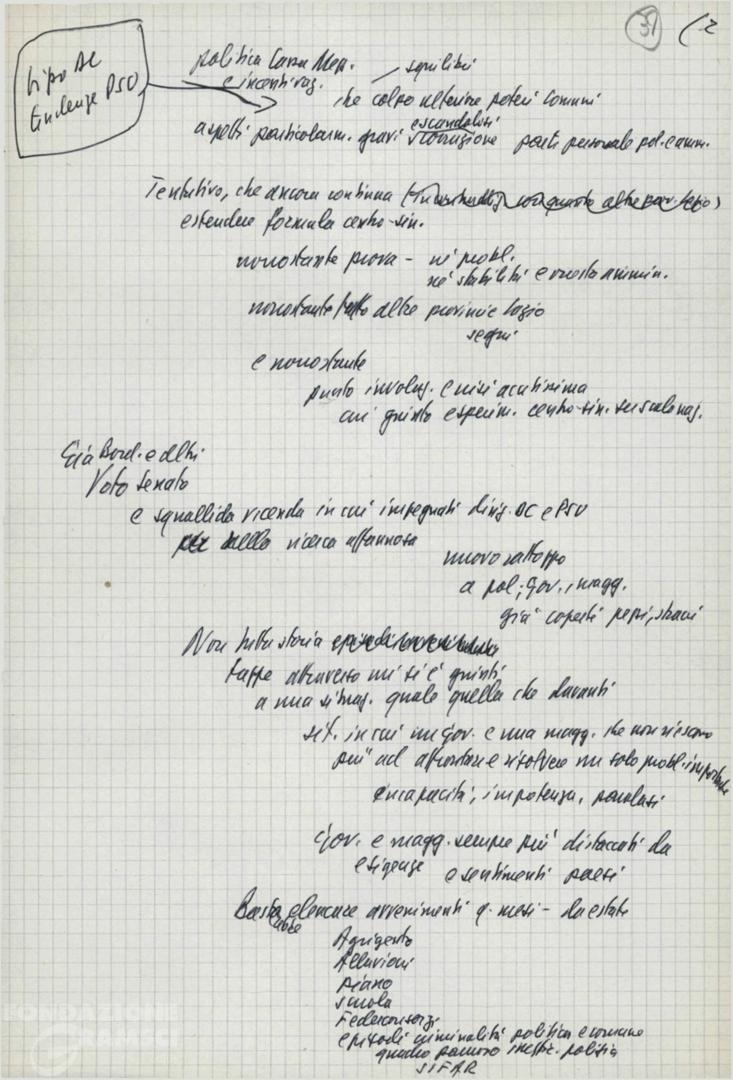 37 (2
tipo DC
tendenze PSU
politica Cassa Mezz.
e incentivaz.
squilibri
che colpo ulteriore poteri Comuni
aspetti particolarm. gravi e scandalosi corruzione parte personale pol. e amm.
Tentativo, che ancora continua
estendere formula centro-sin.
nonostante prova - né probl.
né stabilità e onestà ammin.
nonostante fatto altre provincie Lazio
segni
e nonostante
punto involuz. e crisi acutissima
cui giunto esperim. centro-sin. su scala naz.
Già Bord. e altri
Voto Senato
e squallida vicenda in cui impegnati dirig. DC e PSU
nella ricerca affannosa
nuovo rattoppo
a pol., gov., magg.
già coperti pezzi, stracci
Non tutta storia
tappe attraverso cui si è giunti
a una situaz. quale quella che davanti
sit. in cui un gov. e una magg. che non riescono
più ad affrontare e risolvere un solo probl. importante
incapacità, impotenza, paralisi
Gov. e magg. sempre più distaccati da
esigenze e sentimenti paese
Basterebbe elencare avvenimenti q. mesi - da estate
Agrigento
Alluvioni
piano
scuola
Federconsorzi
episodi criminalità politica e comune
quadro pauroso ineffic. polizia
SIFAR
FONDAZIONE
GRAMSCI